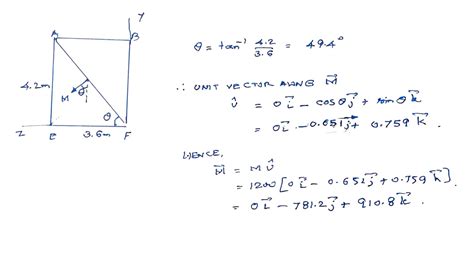 Y
A
B
4.2m
M
θ
θ
Z
E
3.6m
F
θ = tan⁻¹ 4.2/3.6 = 49.4°
∴ UNIT VECTOR ALONG M⃗
û = 0i⃗ - cosθj⃗ + sinθk⃗
= 0i⃗ - 0.651j⃗ + 0.759k⃗.
HENCE,
M⃗ = Mû
= 1200[0i⃗ - 0.651j⃗ + 0.759k⃗].
= 0i⃗ - 781.2j⃗ + 910.8k⃗.